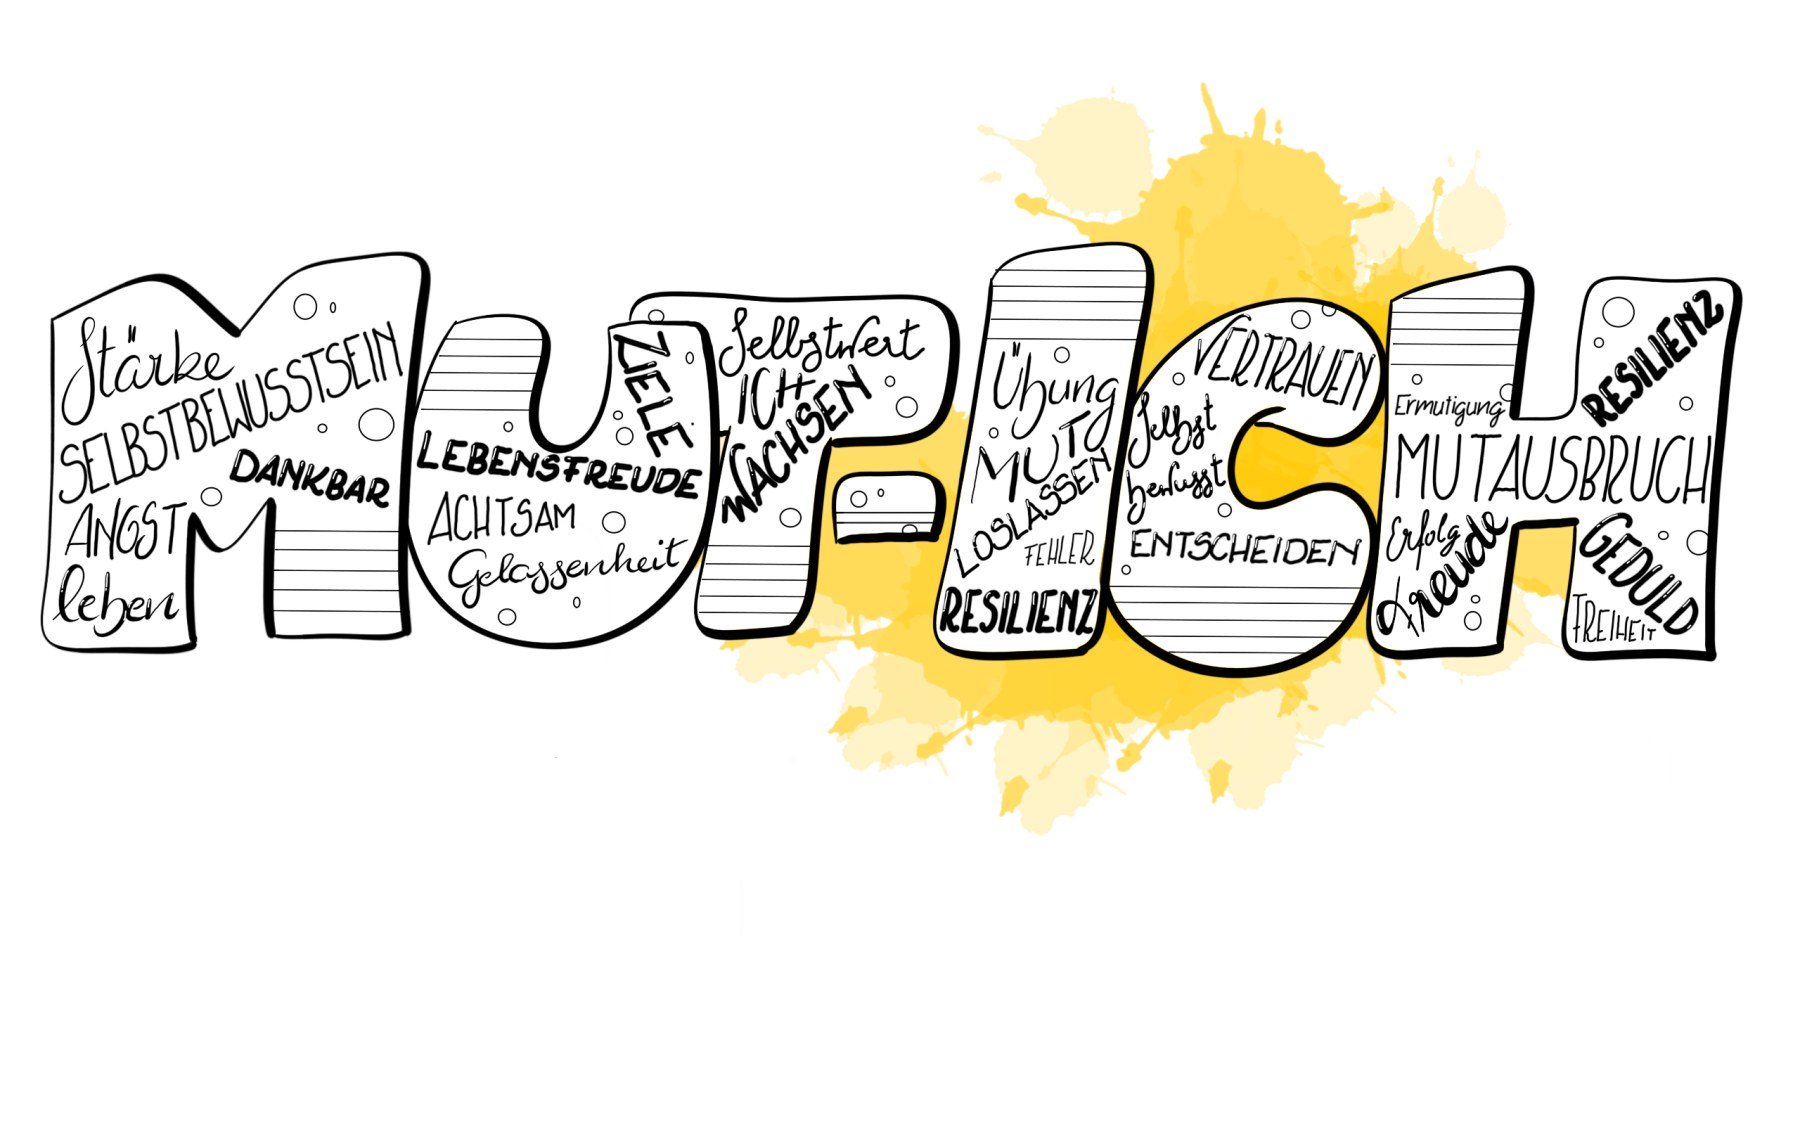 MUT-ICH
Stärke
SELBSTBEWUSSTSEIN
DANKBAR
ANGST
leben
ZIELE
LEBENSFREUDE
ACHTSAM
Gelassenheit
Selbstwert
ICH
WACHSEN
Übung
MUT
LOSLASSEN
FEHLER
RESILIENZ
VERTRAUEN
Selbst
bewusst
ENTSCHEIDEN
Ermutigung
RESILIENZ
MUTAUSBRUCH
Erfolg
Freude
GEDULD
FREIHEIT